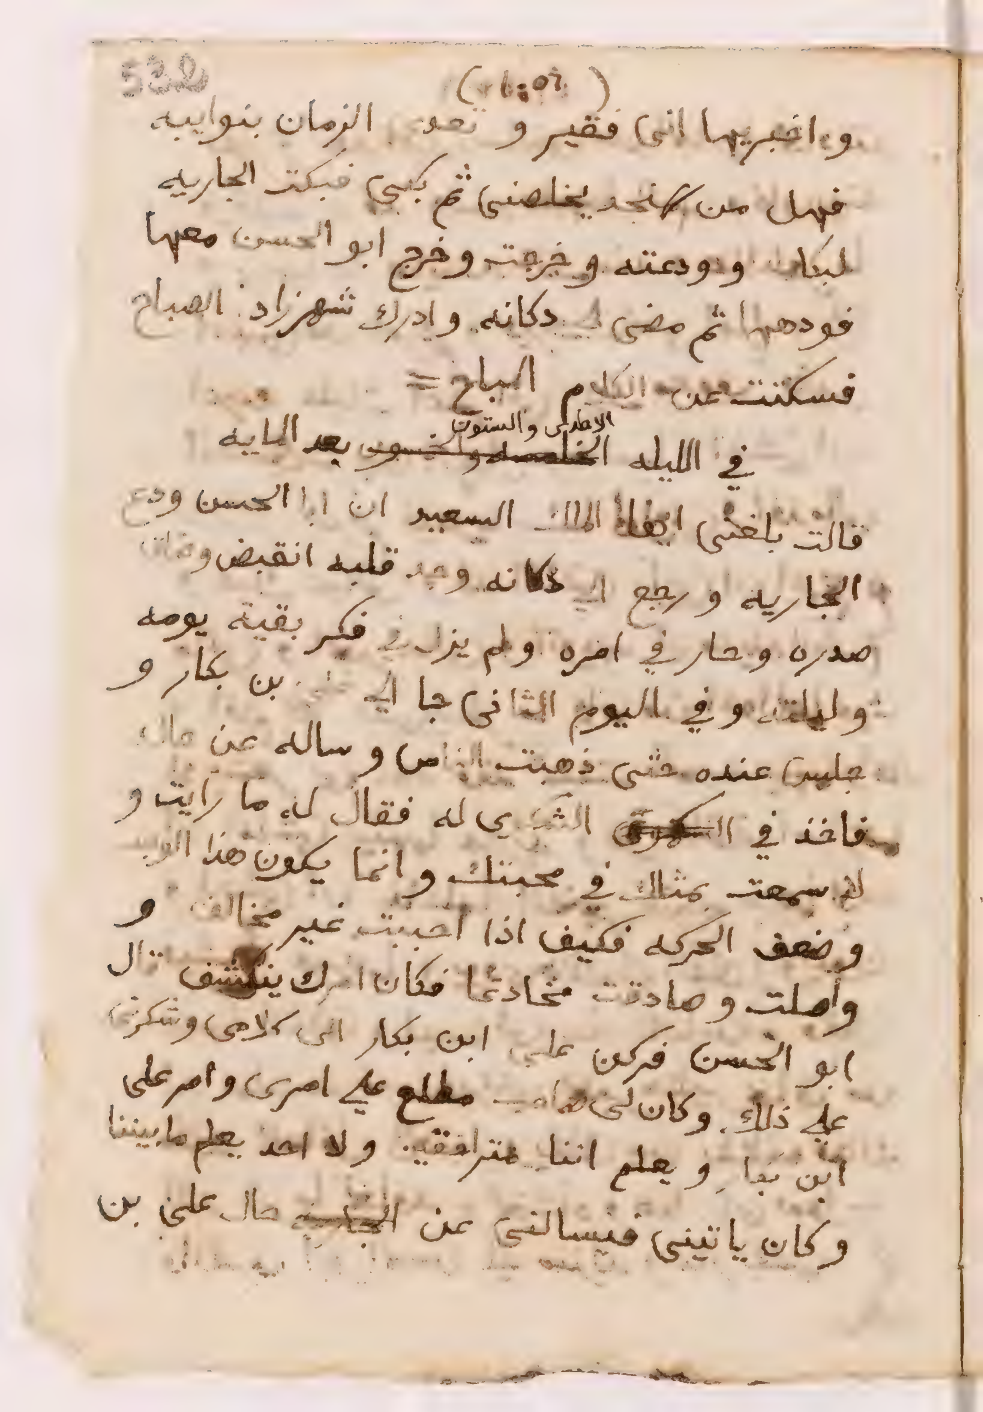 532
واخبريها انى فقير و الزمان بنوايبه
فهل من يخلصنى ثم بكى فبكت الجاريه
لبكاه وودعته وخرجت وخرج ابو الحسن معها
فودعها ثم مضى الى دكانه وادرك شهرزاد الصباح
فسكتت عن الكلام المباح =
الاحدى والستون
في الليله الخامسه والخمسون بعد المايه
قالت بلغنى ايها الملك السعيد ان ابا الحسن ودع
الجاريه و رجع الى دكانه وجد قلبه انقبض وضاق
صدره وحار في امره ولم يزل في فكر بقية يومه
وليلته وفي اليوم الثانى جا الى على بن بكار و
جلس عنده حتى ذهبت الناس وساله عن حاله
فاخذ في الشكوى له فقال له ما رايت و
لا سمعت بمثلك في محبتك وانما يكون هذا الوجد
وضعف الحركه فكيف اذا احببت غير مخالف و
واصلت وصادقت مخادعا فكان امرك ينكشف قال
ابو الحسن فركن على ابن بكار الى كلامى وشكرنى
على ذلك وكان لى صاحب مطلع على امرى وامر على
ابن بكار ويعلم اننا مترافقين ولا احد يعلم مابيننا
وكان ياتينى فيسالنى عن الجاريه حال على بن